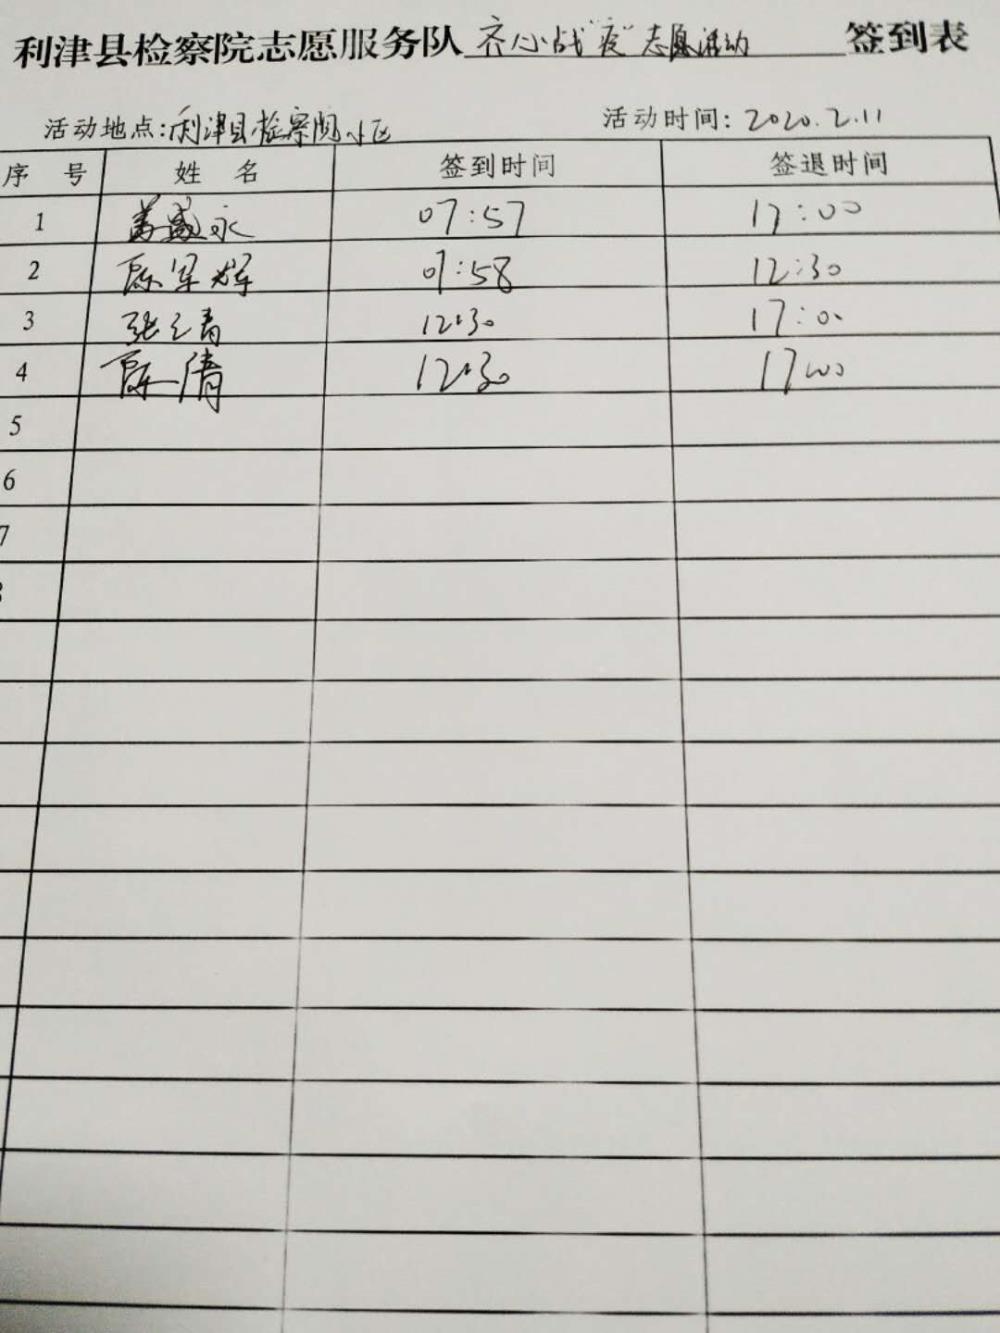 利津县检察院志愿服务队 齐心战"疫"志愿活动 签到表
活动地点:利津县检察院小区 活动时间: 2020.2.11
序 号 姓 名 签到时间 签退时间
1 盛永 07:57 17:00
2 陈军辉 07:58 12:30
3 张之青 12:30 17:00
4 陈倩 12:30 17:00
5
6
7